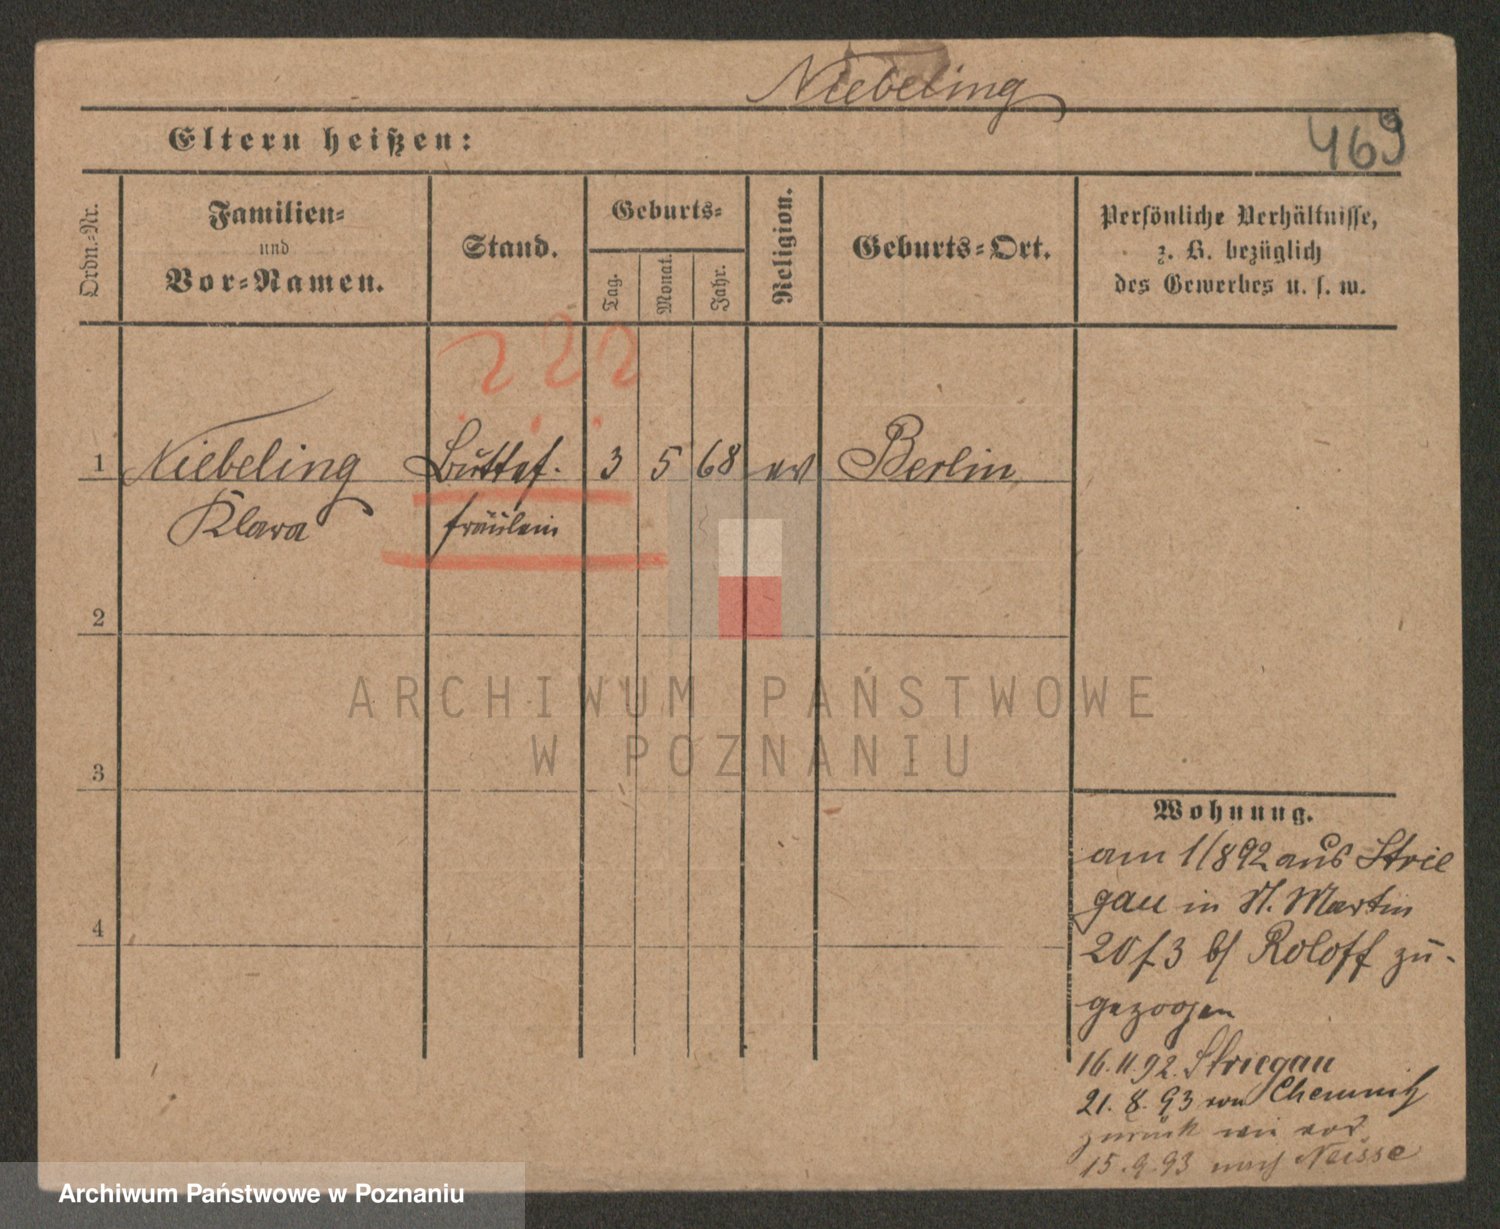 Niebeling
469
Eltern heißen:
Ordn.-Nr.
Familien-
und
Vor-Namen.
Stand.
Geburts-
Tag.
Monat.
Jahr.
Religion.
Geburts-Ort.
Persönliche Verhältnisse,
z. B. bezüglich
des Gewerbes u. s. w.
1 Niebeling Buffet- 3 5 68 ev Berlin
Klara fräulein
2
3
4
ARCHIWUM PAŃSTWOWE
W POZNANIU
Wohnung.
am 1/892 aus Strie
gau in St. Martin
20 f 3 b/ Roloff zu-
gezogen
16.11.92. Striegau
21. 8. 93 von Chemnitz
zurück wie vor
15.9.93 nach Neisse
Archiwum Państwowe w Poznaniu